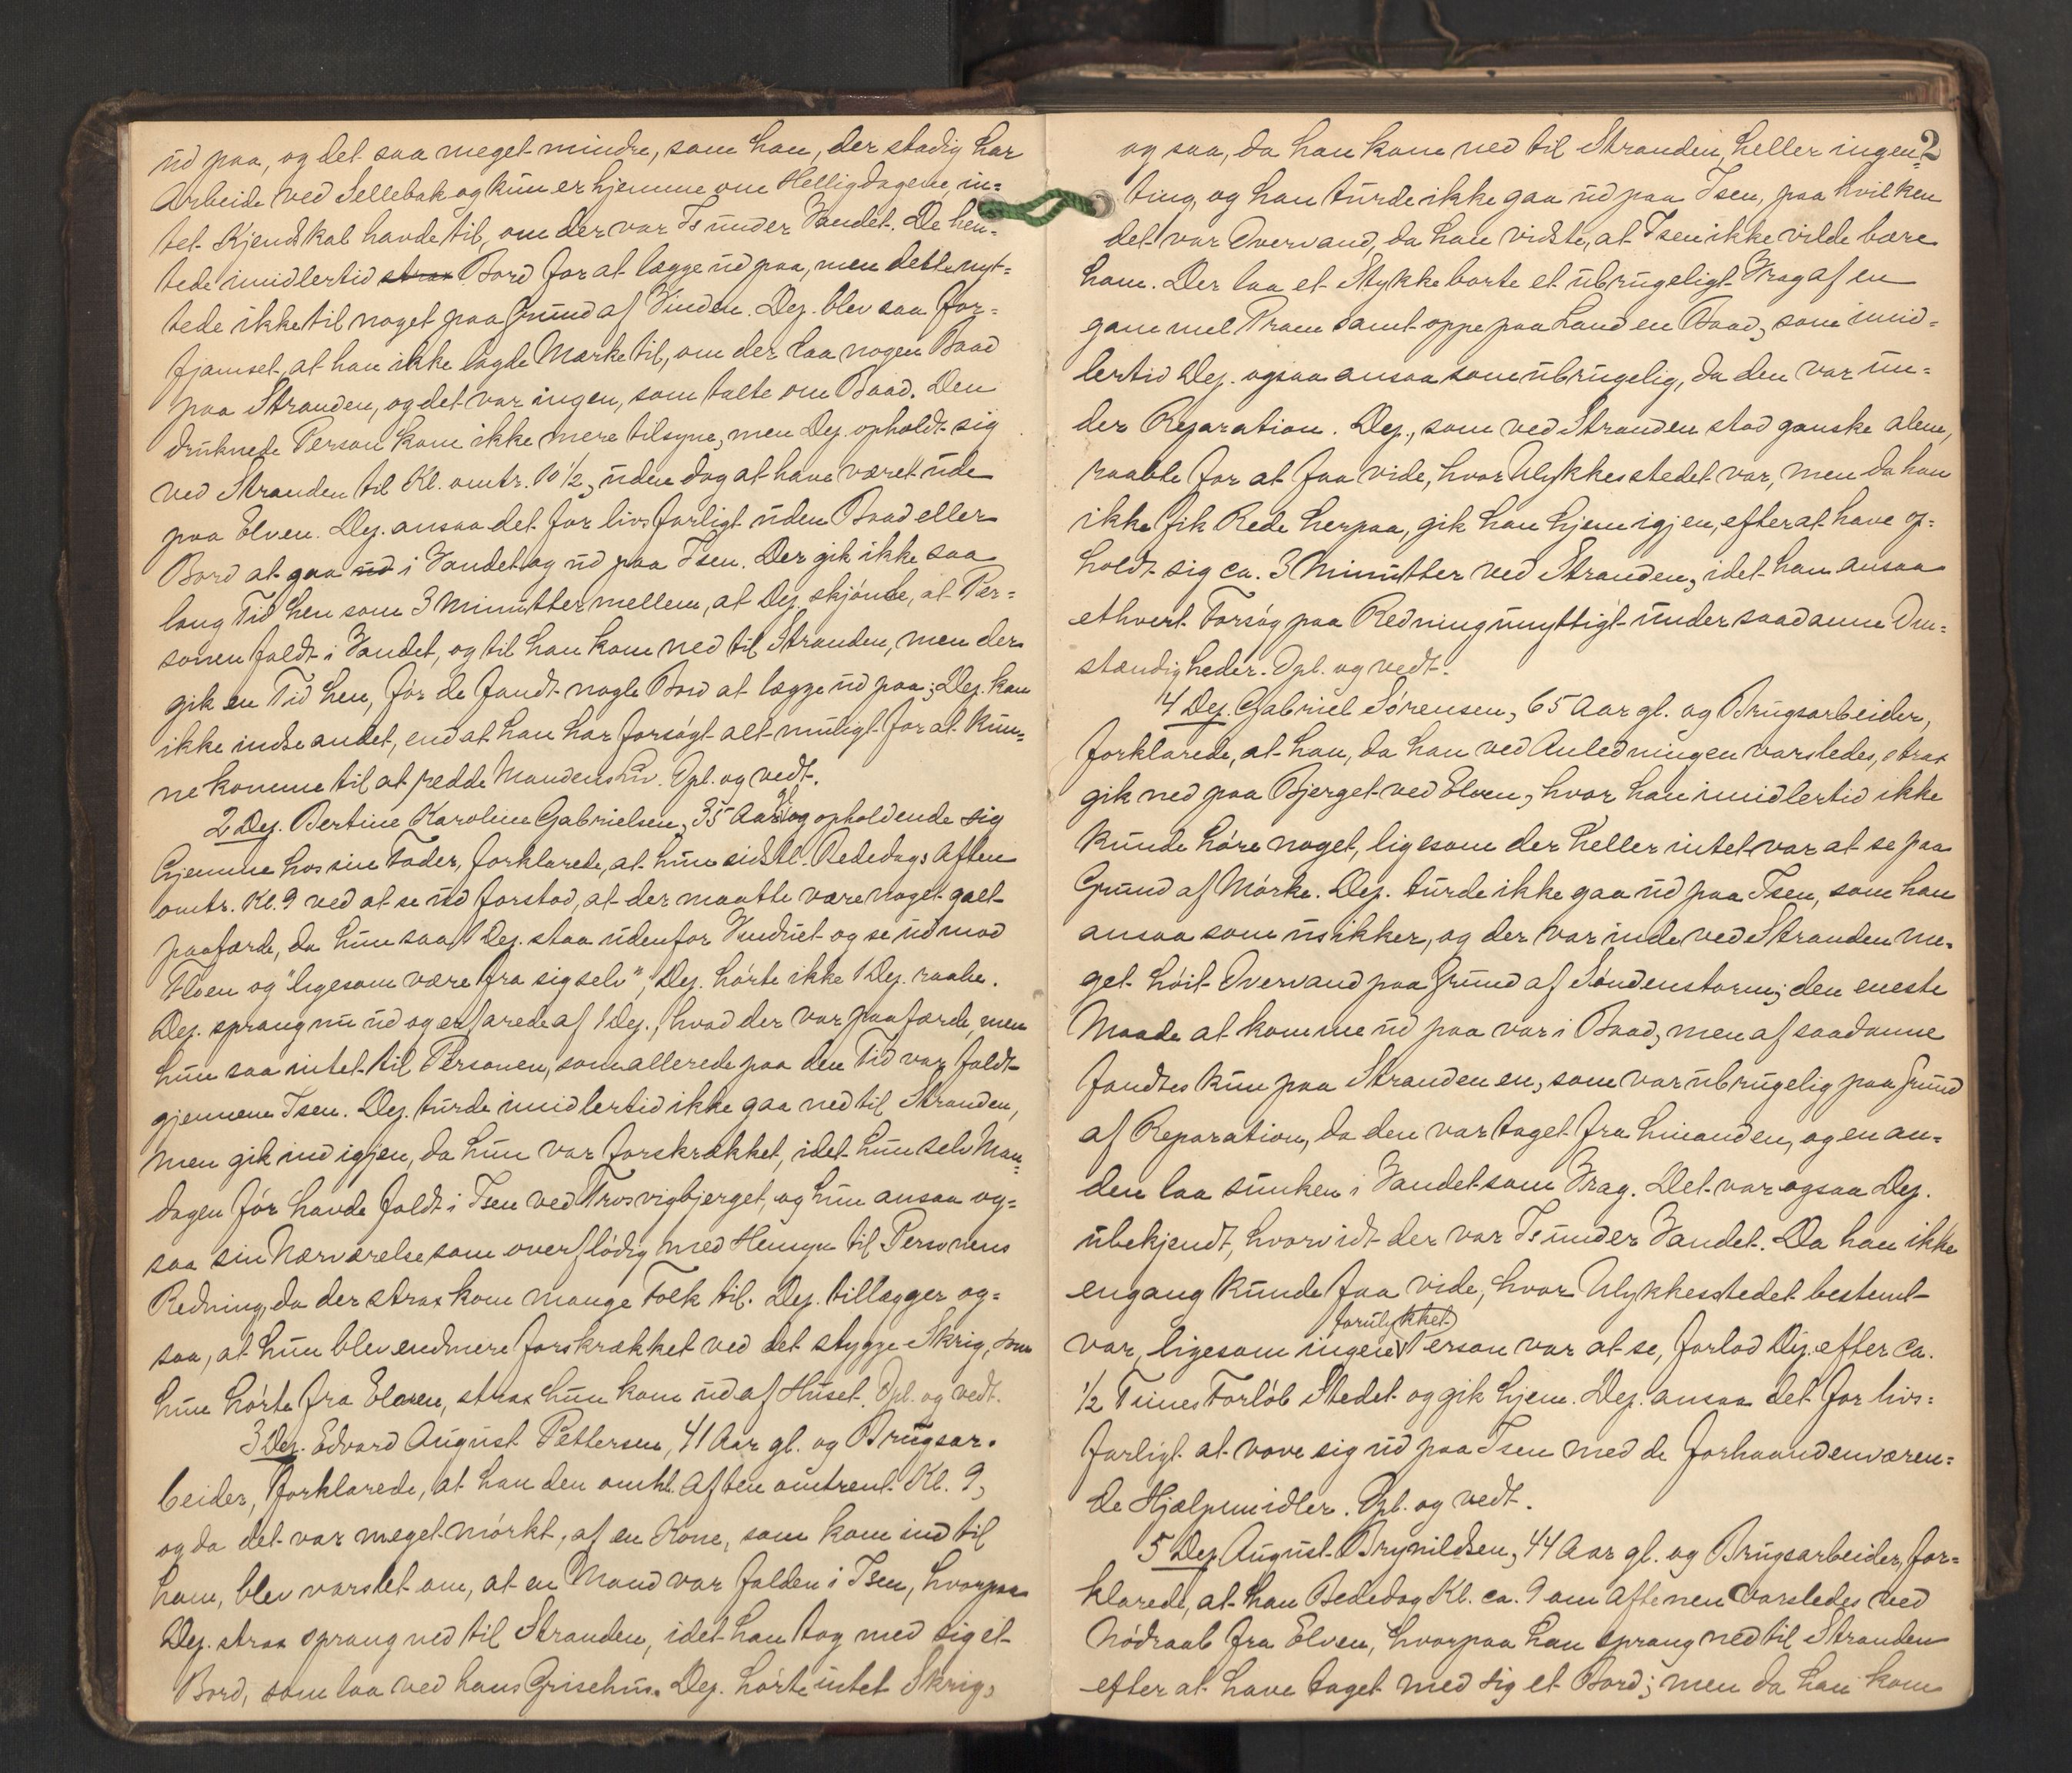 ud paa, og det saa meget mindre, som han, der stadig har
Arbeide ved Sellebak og kun er hjemme om Helligdagene, in=
tet Kjendskab havde til, om der var Is under Vandet. De hen=
tede imidlertid strax Bord for at lægge ud paa, men dette nyt=
tede ikke til noget paa Grund af Vinden. Dep. blev saa for=
fjamset, at han ikke lagde Mærke til, om der laa nogen Baad
paa Stranden, og det var ingen, som talte om Baad. Den
druknede Person kom ikke mere tilsyne, men Dep. opholdt sig
ved Stranden til Kl. omtr. 10½, uden dog at have været ude
paa Elven. Dep. ansaa det for livsfarligt uden Baad eller
Bord at gaa ud i Vandet og ud paa Isen. Der gik ikke saa
lang Tid hen som 3 Minutter mellem, at Dep. skjønte, at Per=
sonen faldt i Vandet, og til han kom ned til Stranden, men der
gik en Tid hen, før de fandt nogle Bord at lægge ud paa; Dep. kan
ikke indse andet, end at han har forsøgt alt muligt for at kun=
ne komme til at redde Mandens Liv. Opl. og vedt.
2 Dep. Bertine Karoline Gabrielsen, 35 Aar gl. og opholdende sig
hjemme hos sin Fader, forklarede, at hun sidstl. Bededags Aften
omtr. Kl. 9 ved at se ud forstod, at der maatte være noget galt
paafærde, da hun saa 1 Dep. staa udenfor Vinduet og se ud mod
Elven og "ligesom være fra sig selv"; Dep. hørte ikke 1 Dep. raabe.
Dep. sprang nu ud og erfarede af 1 Dep., hvad der var paafærde, men
hun saa intet til Personen, som allerede paa den Tid var faldt
gjennem Isen. Dep. turde imidlertid ikke gaa ned til Stranden,
men gik ind igjen, da hun var forskrækket, idet hun selv Man=
dagen før havde faldt i Isen ved Trosvigbjerget, og hun ansaa og=
saa sin Nærværelse som overflødig med Hensyn til Personens
Redning, da der strax kom mange Folk til. Dep. tillægger og=
saa, at hun blev endmere forskrækket ved det stygge Skrig, som
hun hørte fra Elven, strax hun kom ud af Huset. Opl. og vedt.
3 Dep. Edvard August Pettersen, 41 Aar gl. og Brugsar=
beider, forklarede, at han den omhl. Aften omtrent Kl. 9,
og da det var meget mørkt, af en Kone, som kom ind til
ham, blev varslet om, at en Mand var falden i Isen, hvorpaa
Dep. strax sprang ned til Stranden, idet han tog med sig et
Bord, som laa ved hans Grisehus. Dep. hørte intet Skrig,
2
og saa, da han kom ned til Stranden, heller ingen=
ting, og han turde ikke gaa ud paa Isen, paa hvilken
det var Overvand, da han vidste, at Isen ikke vilde bære
ham. Der laa et Stykke borte et ubrugeligt Vrag af en
gammel Pram samt oppe paa Land en Baad, som imid=
lertid Dep. ogsaa ansaa som ubrugelig, da den var un=
der Reparation. Dep., som ved Stranden stod ganske alene,
raabte for at faa vide, hvor Ulykkesstedet var, men da han
ikke fik Rede herpaa, gik han hjem igjen, efter at have op=
holdt sig ca. 3 Minutter ved Stranden, idet han ansaa
ethvert Forsøg paa Redning unyttigt under saadanne Om=
stændigheder. Opl. og vedt.
4 Dep. Gabriel Sørensen, 65 Aar gl. og Brugsarbeider,
forklarede, at han, da han ved Anledningen varsledes, strax
gik ned paa Bjerget ved Elven, hvor han imidlertid ikke
kunde høre noget, ligesom der heller intet var at se paa
Grund af Mørke. Dep. turde ikke gaa ud paa Isen, som han
ansaa som usikker, og der var inde ved Stranden me=
get høit Overvand paa Grund af Søndenstorm; den eneste
Maade at komme ud paa var i Baad, men af saadanne
fandtes kun paa Stranden en, som var ubrugelig paa Grund
af Reparation, da den var taget fra hinanden, og en an=
den laa sunken i Vandet som Vrag. Det var ogsaa Dep.
ubekjendt, hvorvidt der var Is under Vandet. Da han ikke
engang kunde faa vide, hvor Ulykkesstedet bestemt
forulykket
var, ligesom ingen Person var at se, forlod Dep. efter ca.
½ Times Forløb Stedet og gik hjem. Dep. ansaa det for livs=
farligt at vove sig ud paa Isen med de forhaandenværen=
de Hjælpemidler. Opl. og vedt.
5 Dep. August Brynildsen, 44 Aar gl. og Brugsarbeider, for=
klarede, at han Bededag Kl. ca. 9 om Aftenen varsledes ved
Nødraab fra Elven, hvorpaa han sprang ned til Stranden
efter at have taget med sig et Bord; men da han kom